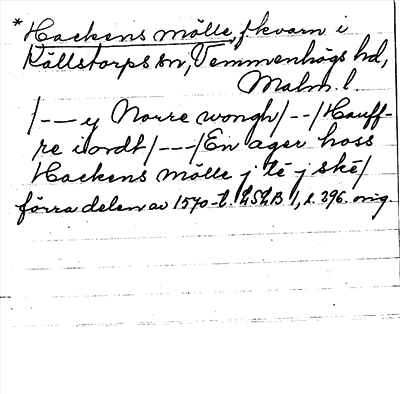 * Hackens mölle, f kvarn i
Källstorps sn, Vemmenhögs hd,
Malm. l.
/--- y Norre wongh/--/Hauff-
re iordt/---/En ager hoss
Hackens mölle j tē j skē/
förra delen av 1570-t. LSLB 1, s. 396. orig.